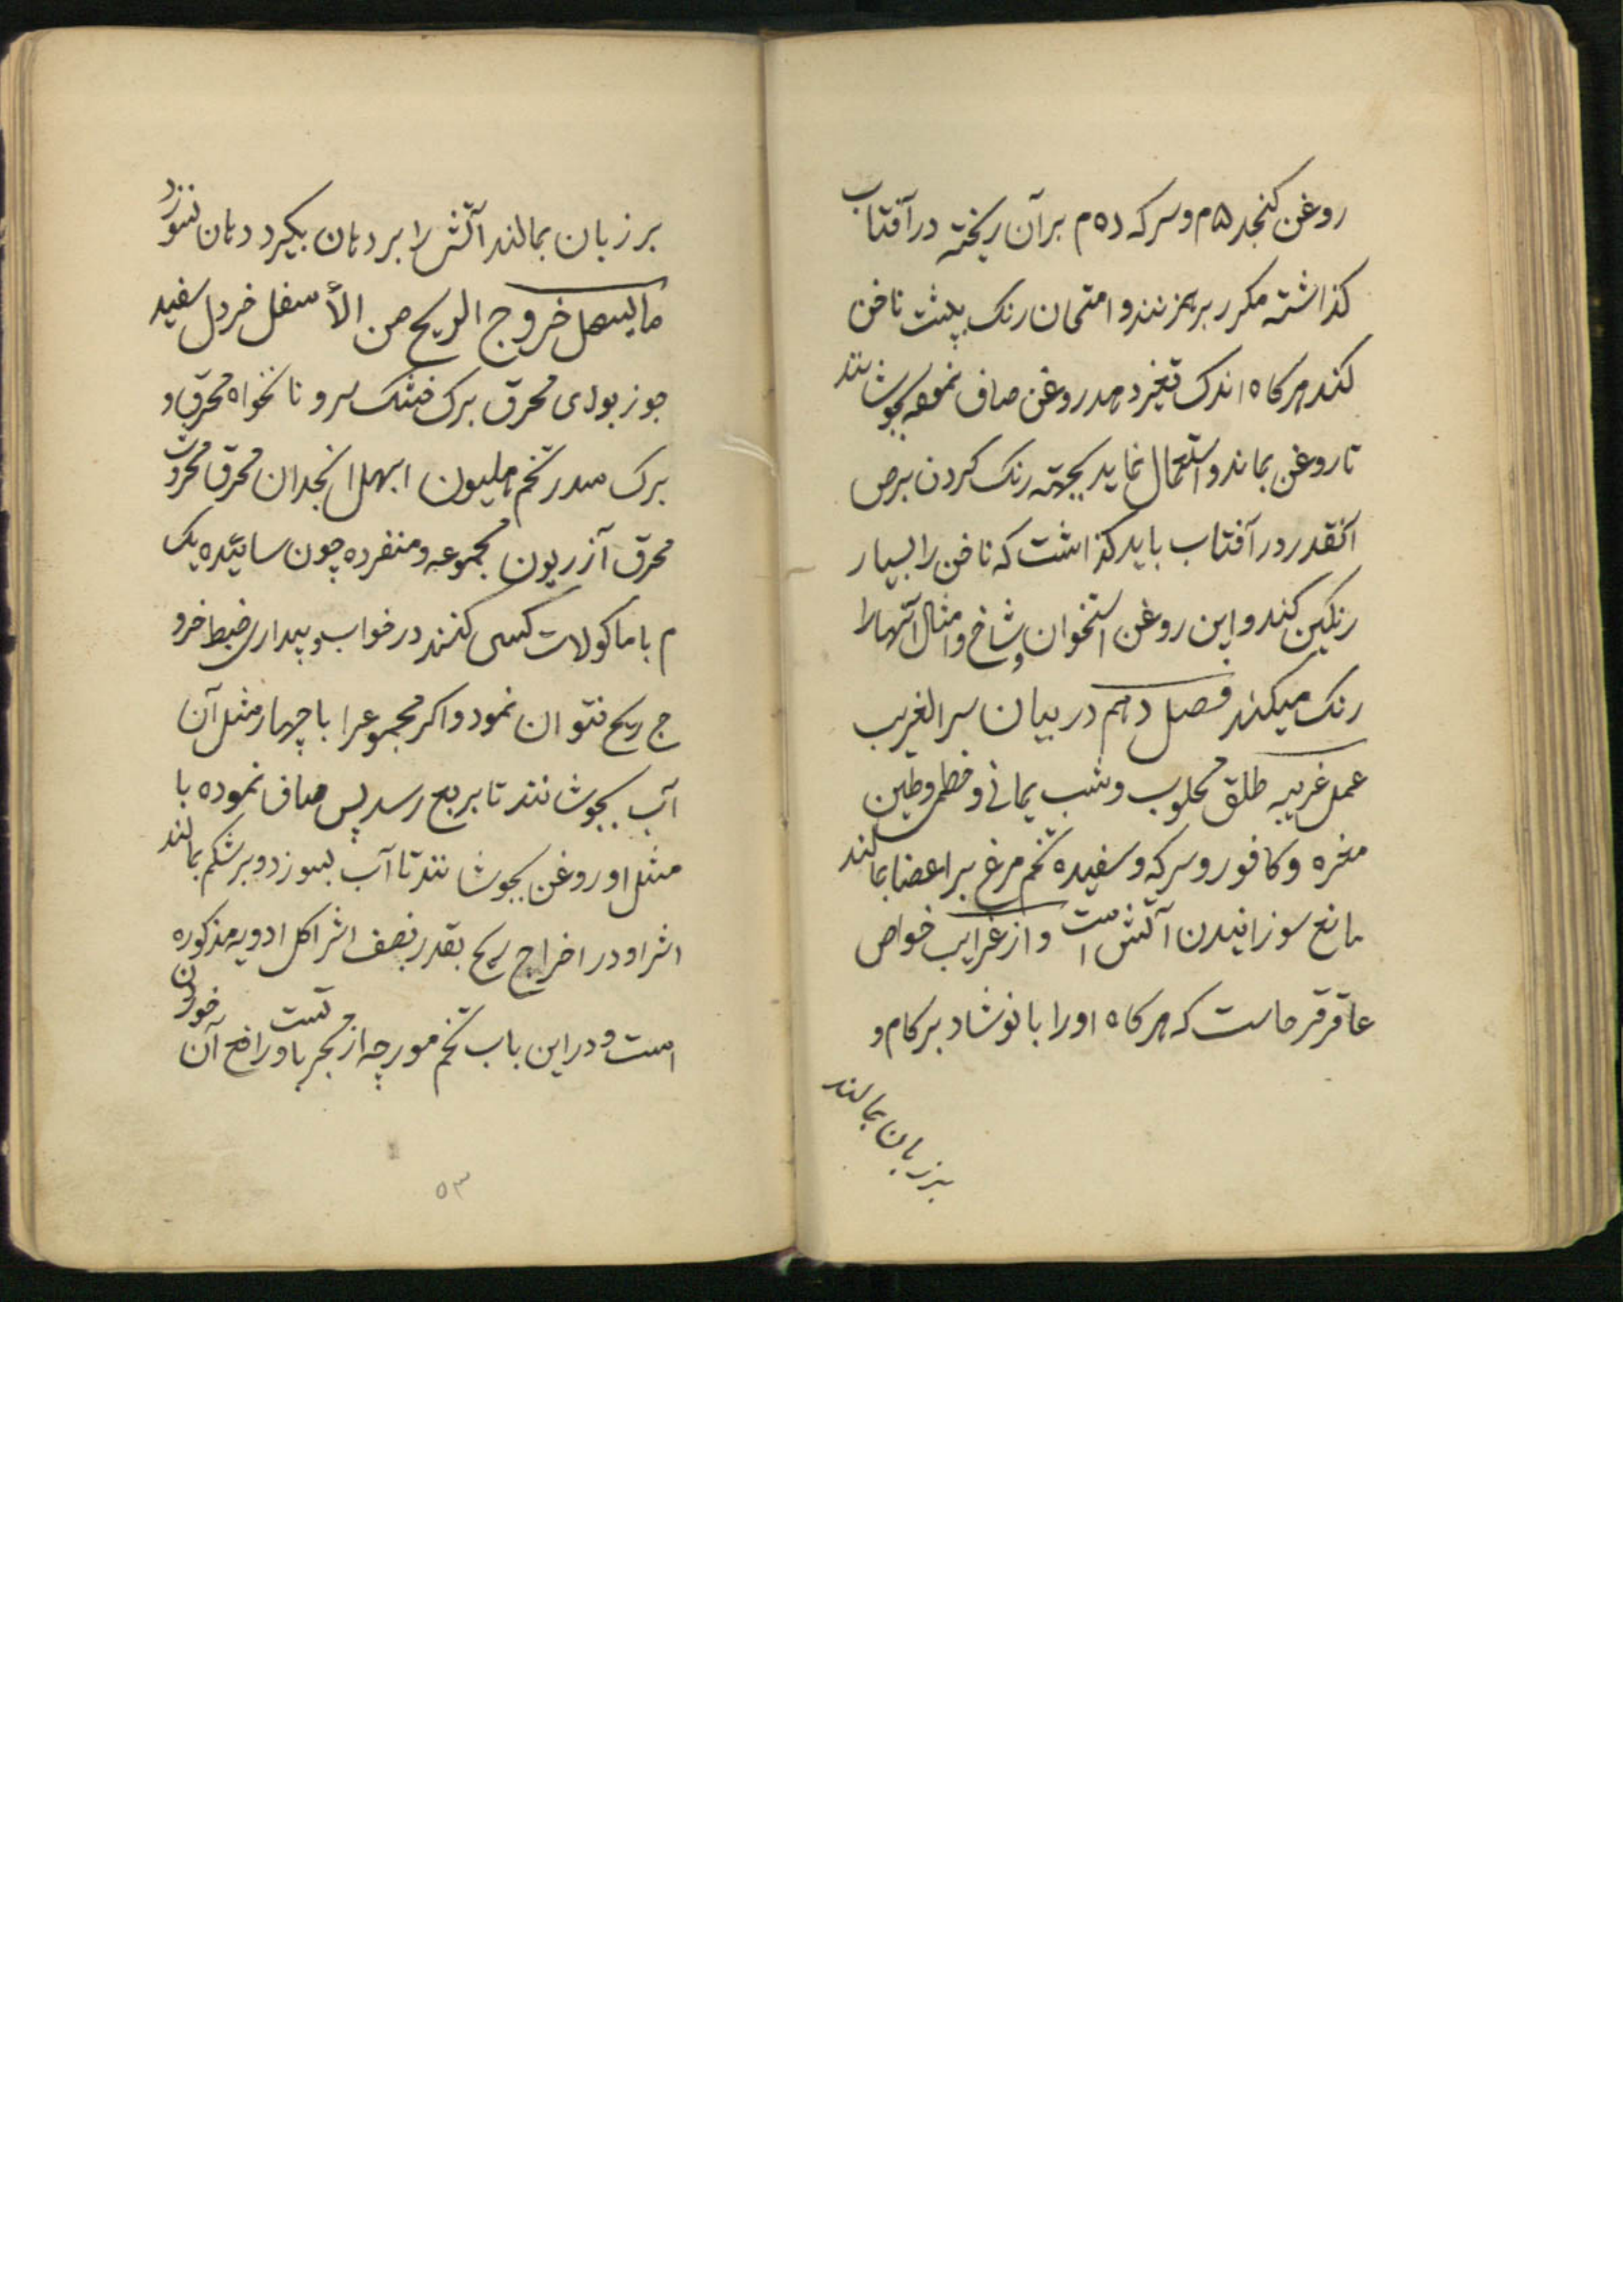 روغن کنجد ۵م و سرکه ده م بر آن ریخته در آفتاب
کذاشته مکرر بر همزنند و امتحان رنک بپشت ناخن
کنند هر کاه اندک تغیر دهد روغن صاف نموده بجوشانند
تا روغن بماند و استعمال نماید بجهته رنک کردن برص
آنقدر در آفتاب باید کذاشت که ناخن را بسیار
رنکین کند و این روغن استخوان و شاخ و امثال آنها را
رنک میکند فصل دهم در بیان سر الغریب
عمل غریبه طلق محلوب و شب یمانی و خطمی و طین
مغره و کافور و سرکه و سفیده تخم مرغ بر اعضا بمالند
مانع سوزانیدن آتش است و از غرایب خواص
عاقرقرحاست که هر کاه او را با نوشادر بر کام و
بر زبان بمالند
بر زبان بمالند آتش را بر دهان بکیرد دهان نسوزد
ما یسهل خروج الریح من الأسفل خردل سفید
جوز بوای محرق برک خشک سرو نانخواه محرق و
برک سدر تخم هلیون ابهل انجدان محرق محروت
محرق آزریون مجموعه و منفرده چون سائیده یک
م با ماکولات کسی کنند در خواب و بیداری ضبط خرو
ج ریح نتوان نمود و اکر مجموعرا با چهار مثل آن
آب بجوشانند تا بربع رسد پس صاف نموده با
مثل او روغن بجوشانند تا آب بسوزد و بر شکم بمالند
اثر او در اخراج ریح بقدر نصف اثر اکل ادویه مذکوره
است و در این باب تخم مورچه از مجرباتست و رافع آن خوردن
۵۳